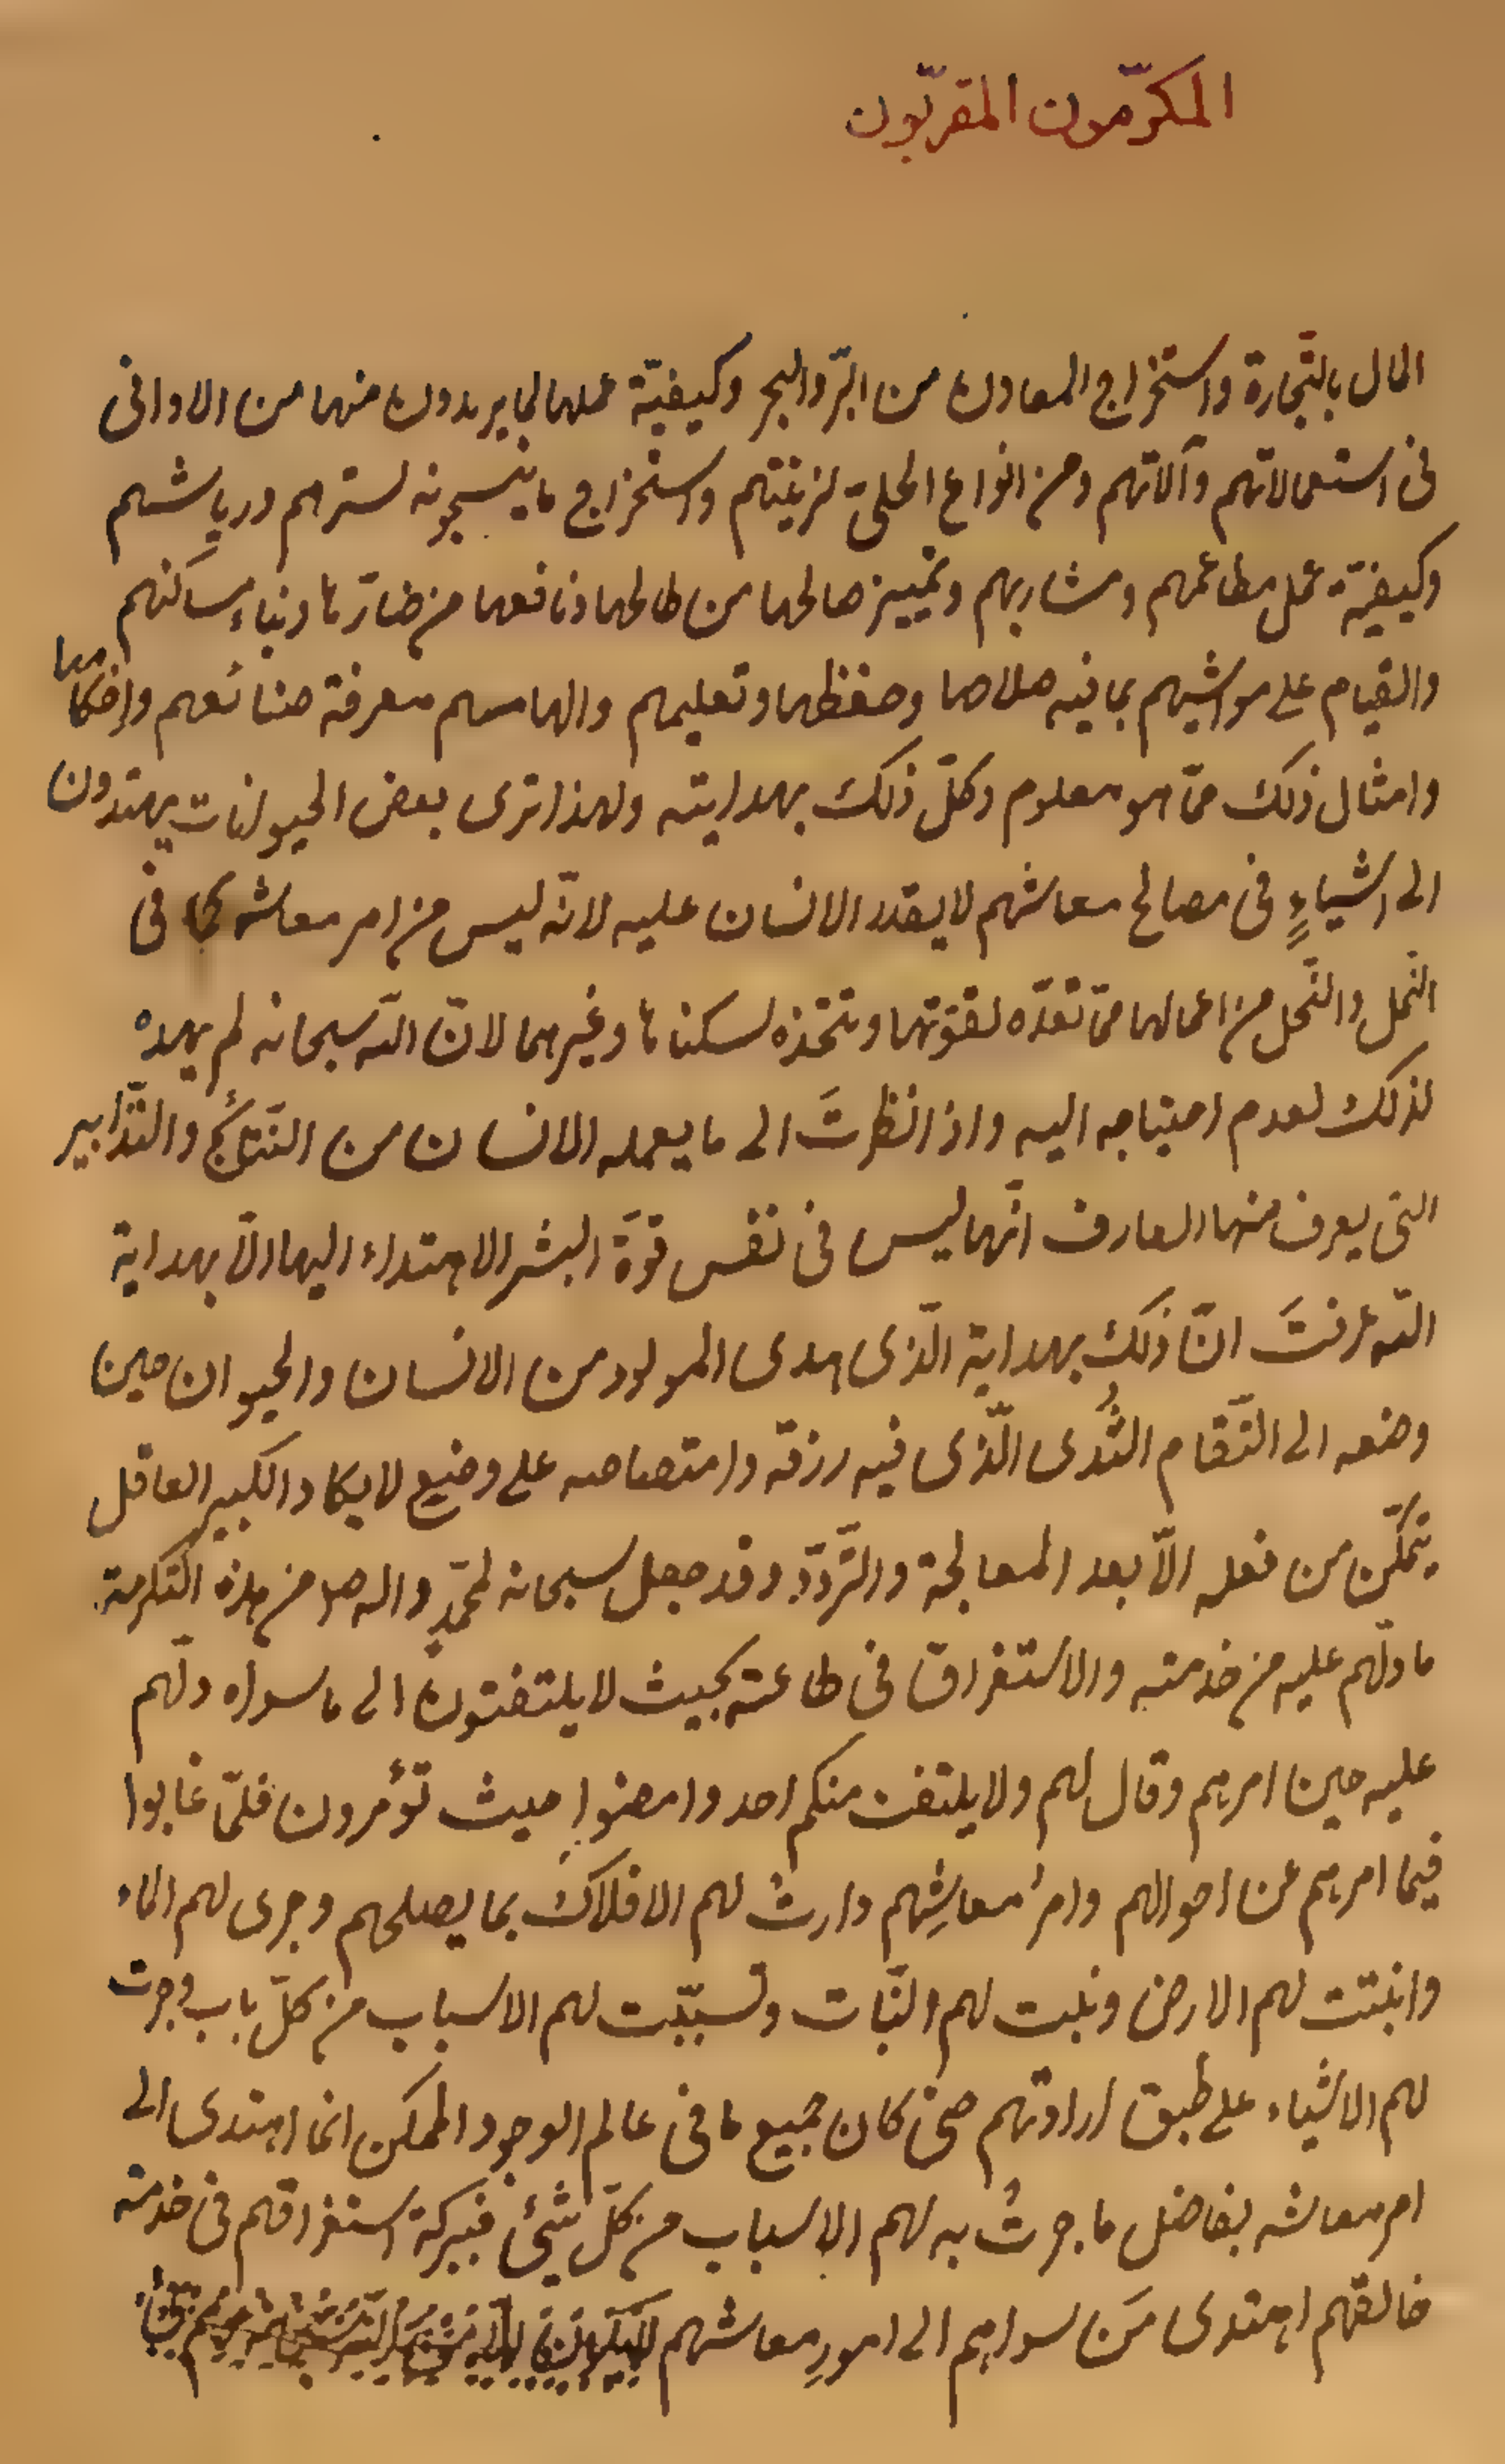 المكرّمون المقرّبون
المال بالتّجارة واستخراج المعادن من البرّ والبحر وكيفيّة عملها لما يريدون منها من الاوانى
فى استعمالاتهم وآلاتهم ومن انواع الحلىّ لزينتهم واستخراج ما ينسجونه لسترهم ورياشهم
وكيفيّة عمل مطاعمهم ومشاربهم وتمييز صالحها من طالحها ونافعها من ضارّها وبناء مساكنهم
والقيام على مواشيهم بما فيه صلاحها وحفظها وتعليمهم والهامهم معرفة صنائعهم واحكامها
وامثال ذلك ممّا هو معلوم وكلّ ذلك بهدايته ولهذا ترى بعض الحيوانات يهتدون
الى اشياءٍ فى مصالح معاشهم لا يقدر الانسان عليه لانّه ليس من امر معاشه كما فى
النّمل والنّحل من اعمالها ممّا تعدّه لقوتها وتتخذه لسكناها وغيرهما لانّ اللّه سبحانه لم يهده
لذلك لعدم احتياجه اليه واذا نظرتَ الى ما يعمله الانسان من النّتائج والتّدابير
التى يعرف منها العارف انّها ليس فى نفس قوّة البشر الاهتداء اليها الّا بهداية
اللّه عرفتَ انّ ذلك بهداية الّذى هدى المولود من الانسان والحيوان حين
وضعه الى التقام الثُدى الّذى فيه رزقه وامتصاصه على وضع لا يكاد الكبير العاقل
يتمكّن من فعله الّا بعد المعالجة والتّردّد وقد جعل سبحانه لمحمّدٍ واله ص من هذه التكرمة
ما دلّهم عليه من خدمته والاستغراق فى طاعته بحيث لا يلتفتون الى ما سواه دلّهم
عليه حين امرهم وقال لهم ولا يلتفت منكم احد وامضوا حيث تؤمرون فلمّا غابوا
فيما امرهم عن احوالهم وامر معاشِهم دارت لهم الافلاك بما يصلحهم وجرى لهم الماء
وانبتت لهم الارض ونبت لهم النّبات وتسبّبت لهم الاسباب من كلّ باب وجرت
لهم الاشياء على طبق ارادتهم حتى كان جميع ما فى عالم الوجود الممكن انما اهتدى الى
امر معاشه بفاضل ما جرتْ به لهم الاسباب من كلّ شىءٍ فببركة استغراقهم فى خدمة
خالقهم اهتدى مَن سواهم الى امورِ معاشهم